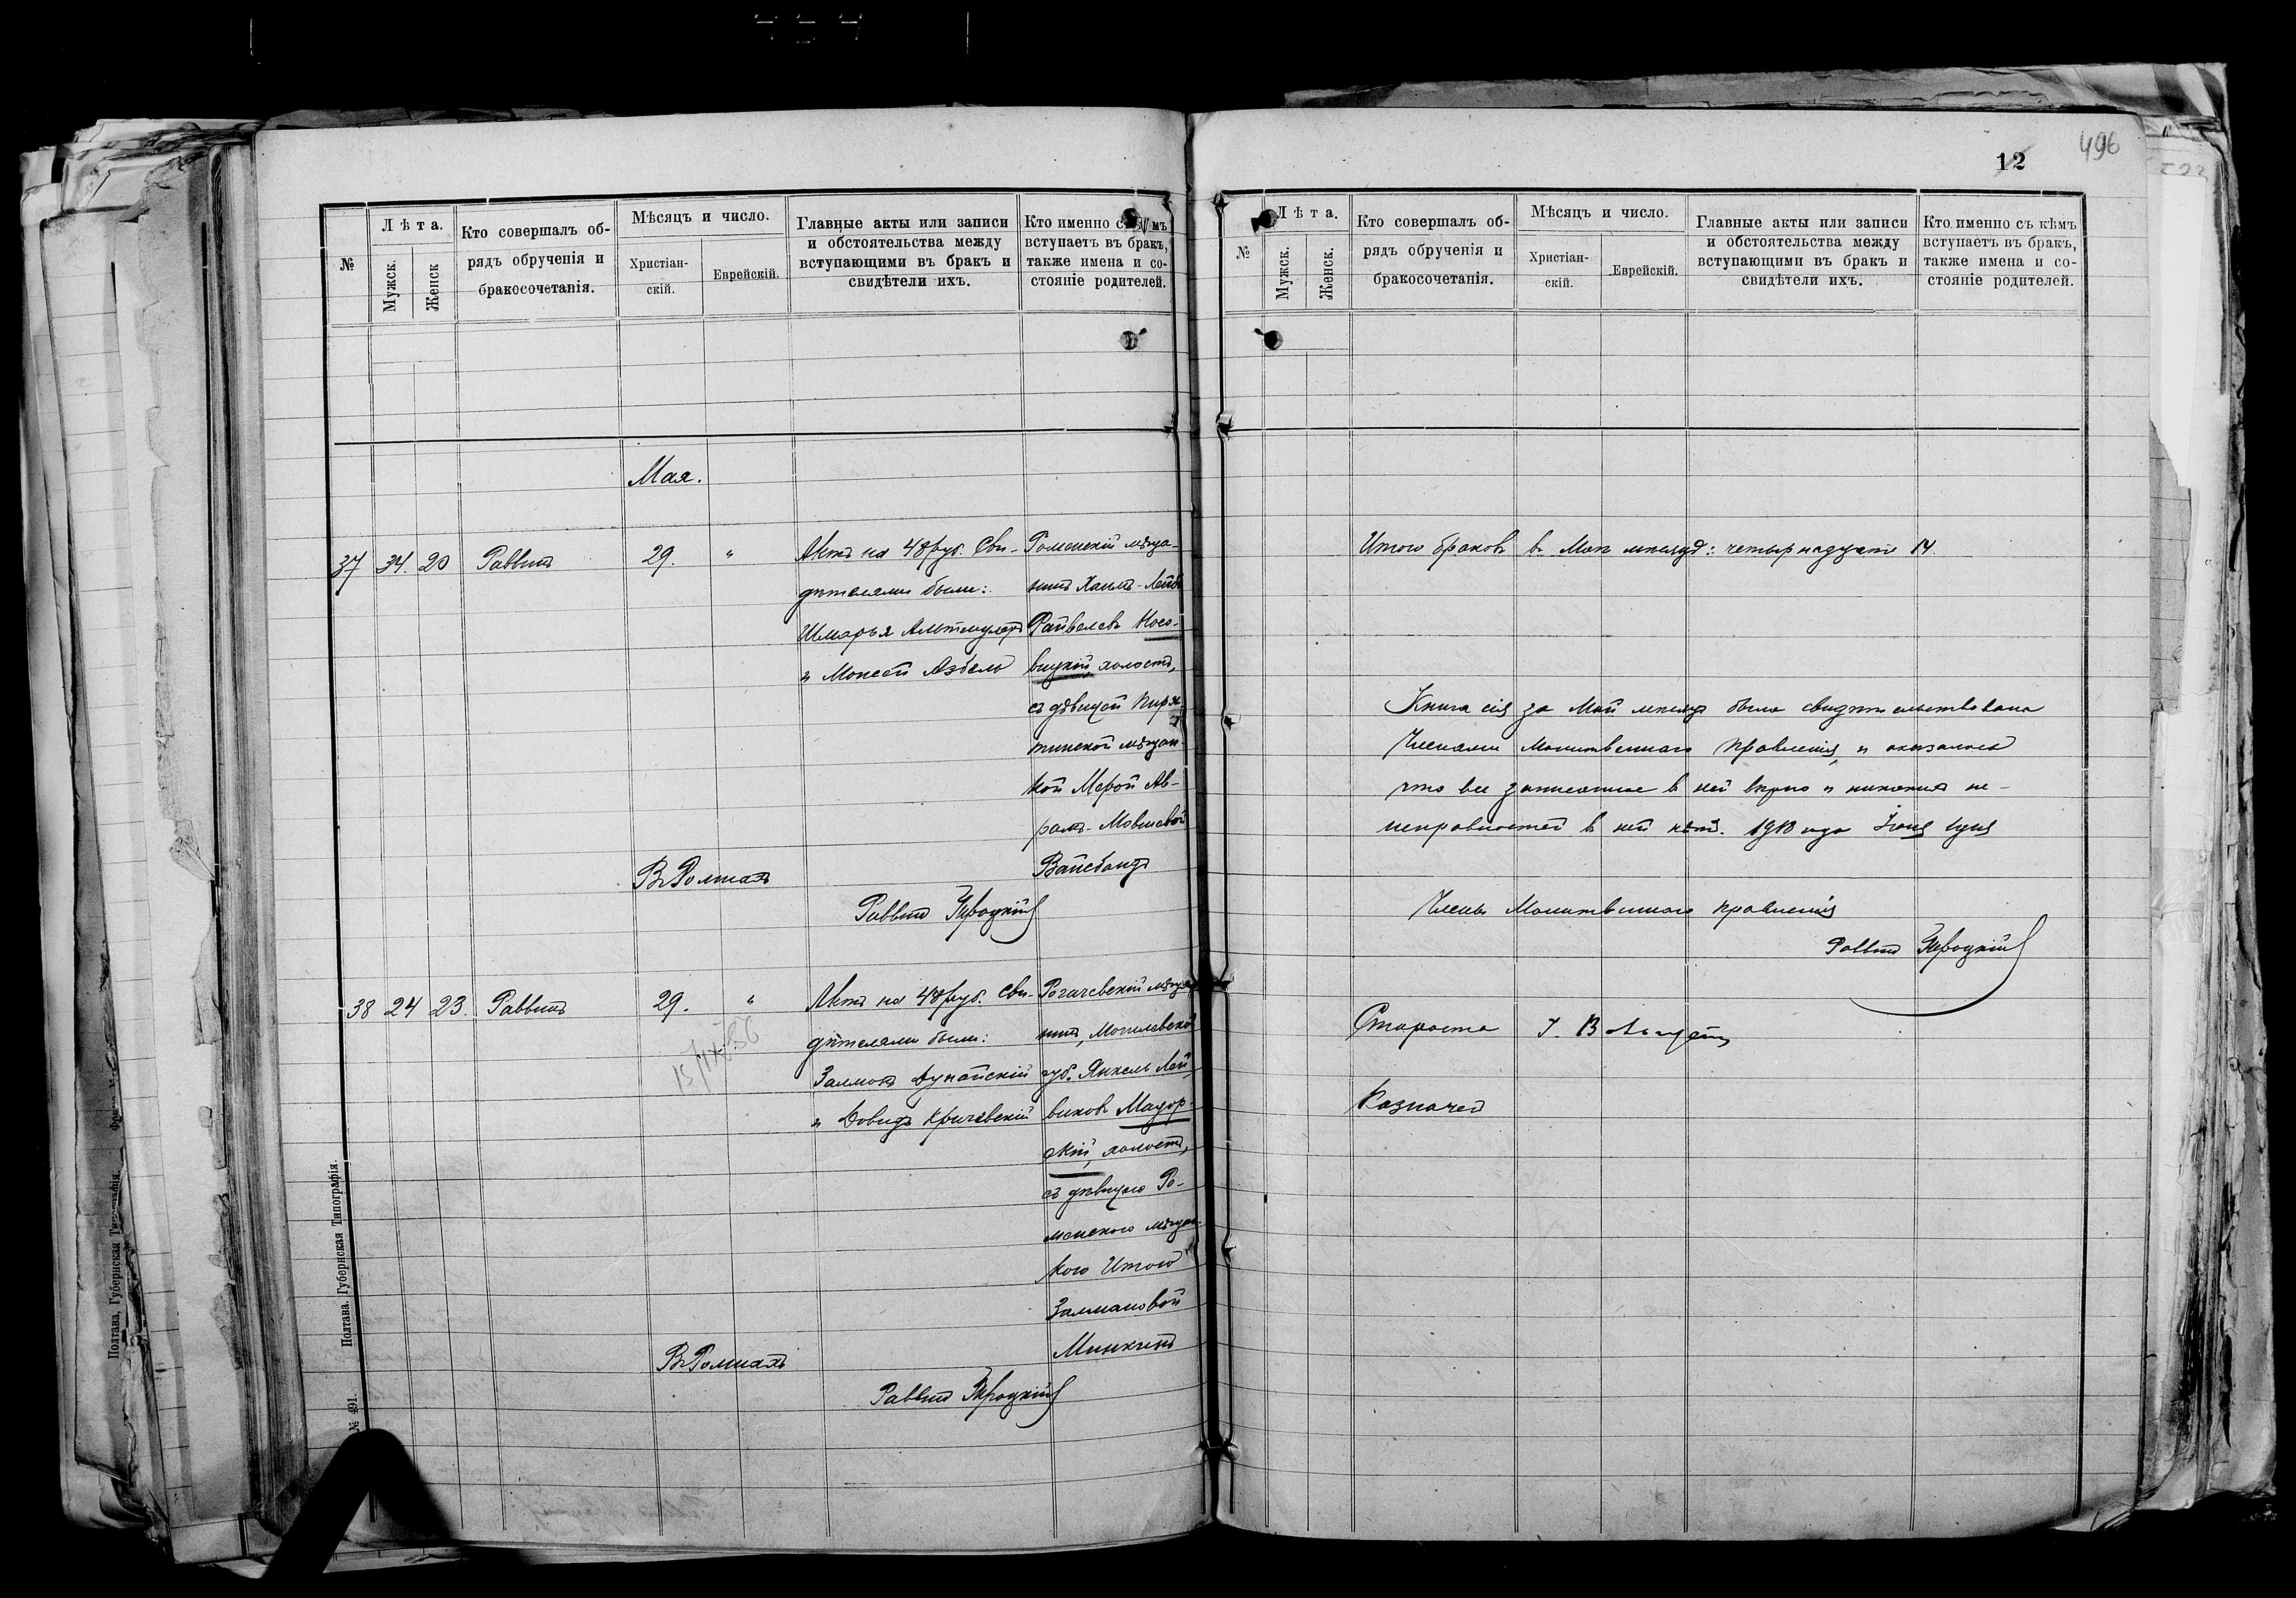 496
12
№
Лѣта.
Мужск.
Женск
Кто совершалъ об-
рядъ обрученія и
бракосочетанія.
Мѣсяцъ и число.
Христіан-
скій.
Еврейскій.
Главные акты или записи
и обстоятельства между
вступающими въ бракъ и
свидѣтели ихъ.
Кто именно съ
вступаетъ въ бракъ,
также имена и со-
стояніе родителей.
Мая.
37 34. 20 Раввинъ 29. "
Актъ на 48 руб. Сви-
дѣтелями были:
Шмарья Альтшулеръ
и Моисей Азбель
Роменскій мѣща-
нинъ Хаимъ-Лейбъ
Файвелевъ Носо-
вицкій, холостъ,
съ дѣвицей Пиря-
тинской мѣщан-
кой Мерой Ав-
рамъ-Мовшевой
Вайсбандъ
Въ Ромнахъ
Раввинъ
38 24 23. Раввинъ 29. "
Актъ на 48 руб. Сви-
дѣтелями были:
Залманъ Дунайскій
и Довидъ Кричевскій
Рогачевскій мѣща-
нинъ, Могилевской
губ. Янкель Лей-
виковъ Мадор-
скій, холостъ,
съ дѣвицею Ро-
менскою мѣщан-
кою Итою
Залмановой
Минкинъ
Въ Ромнахъ
Раввинъ
Полтава. Губернская Типографія.
№ 491.
Полтава, Губернская
№
Лѣта.
Мужск.
Женск.
Кто совершалъ об-
рядъ обрученія и
бракосочетанія.
Мѣсяцъ и число.
Христіан-
скій.
Еврейскій.
Главные акты или записи
и обстоятельства между
вступающими въ бракъ и
свидѣтели ихъ.
Кто именно съ кѣмъ
вступаетъ въ бракъ,
также имена и со-
стояніе родителей.
Итого браковъ въ Маѣ мѣсяцѣ: четырнадцать 14.
Книга сія за Май мѣсяцъ была свидѣтельствована
Членами Молитвеннаго Правленія, и оказалось
что все записанное въ ней вѣрно и никакихъ не-
исправностей въ ней нѣтъ. 1913 года Іюня 1 дня
Члены Молитвеннаго Правленія
Раввинъ
Староста
Казначей